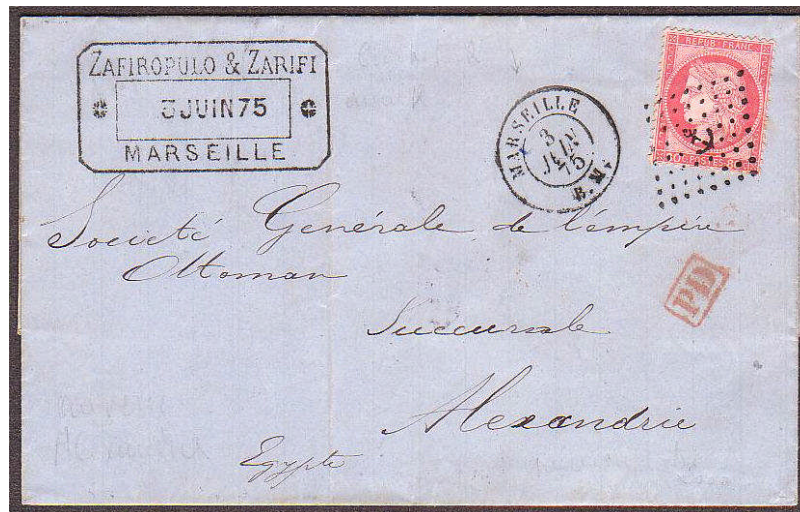 ZAFIROPULO & ZARIFI
3 JUIN 75
MARSEILLE
MARSEILLE
3
JUIN
75
B. M.
REPUB. FRANC.
80 C. POSTES 80 C.
PD
Société Générale de l'émpire
Ottoman
Succursale
Alexandrie
Egypte